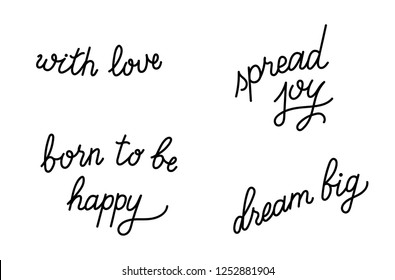 with love
spread
joy
born to be
happy
dream big
shutterstock.com · 1252881904